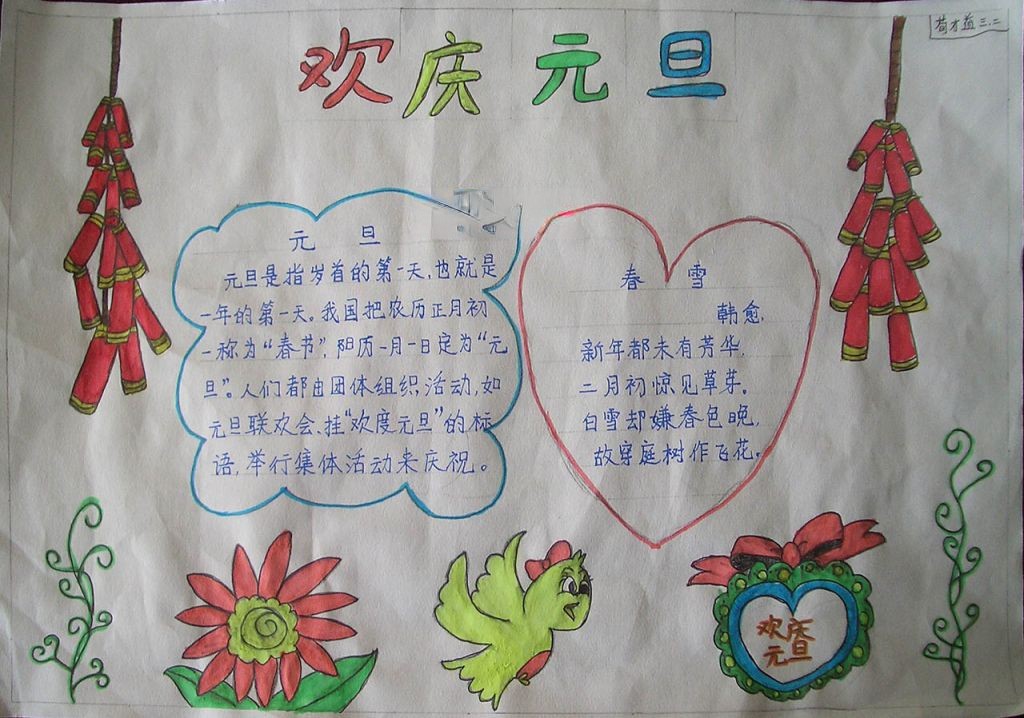 三.二
欢庆元旦
元 旦
元旦是指岁首的第一天,也就是
一年的第一天。我国把农历正月初
一称为“春节”,阳历一月一日定为“元
旦”。人们都由团体组织活动,如
元旦联欢会、挂“欢度元旦”的标
语,举行集体活动来庆祝。
春 雪
韩愈.
新年都未有芳华,
二月初惊见草芽。
白雪却嫌春色晚,
故穿庭树作飞花。
欢庆
元旦